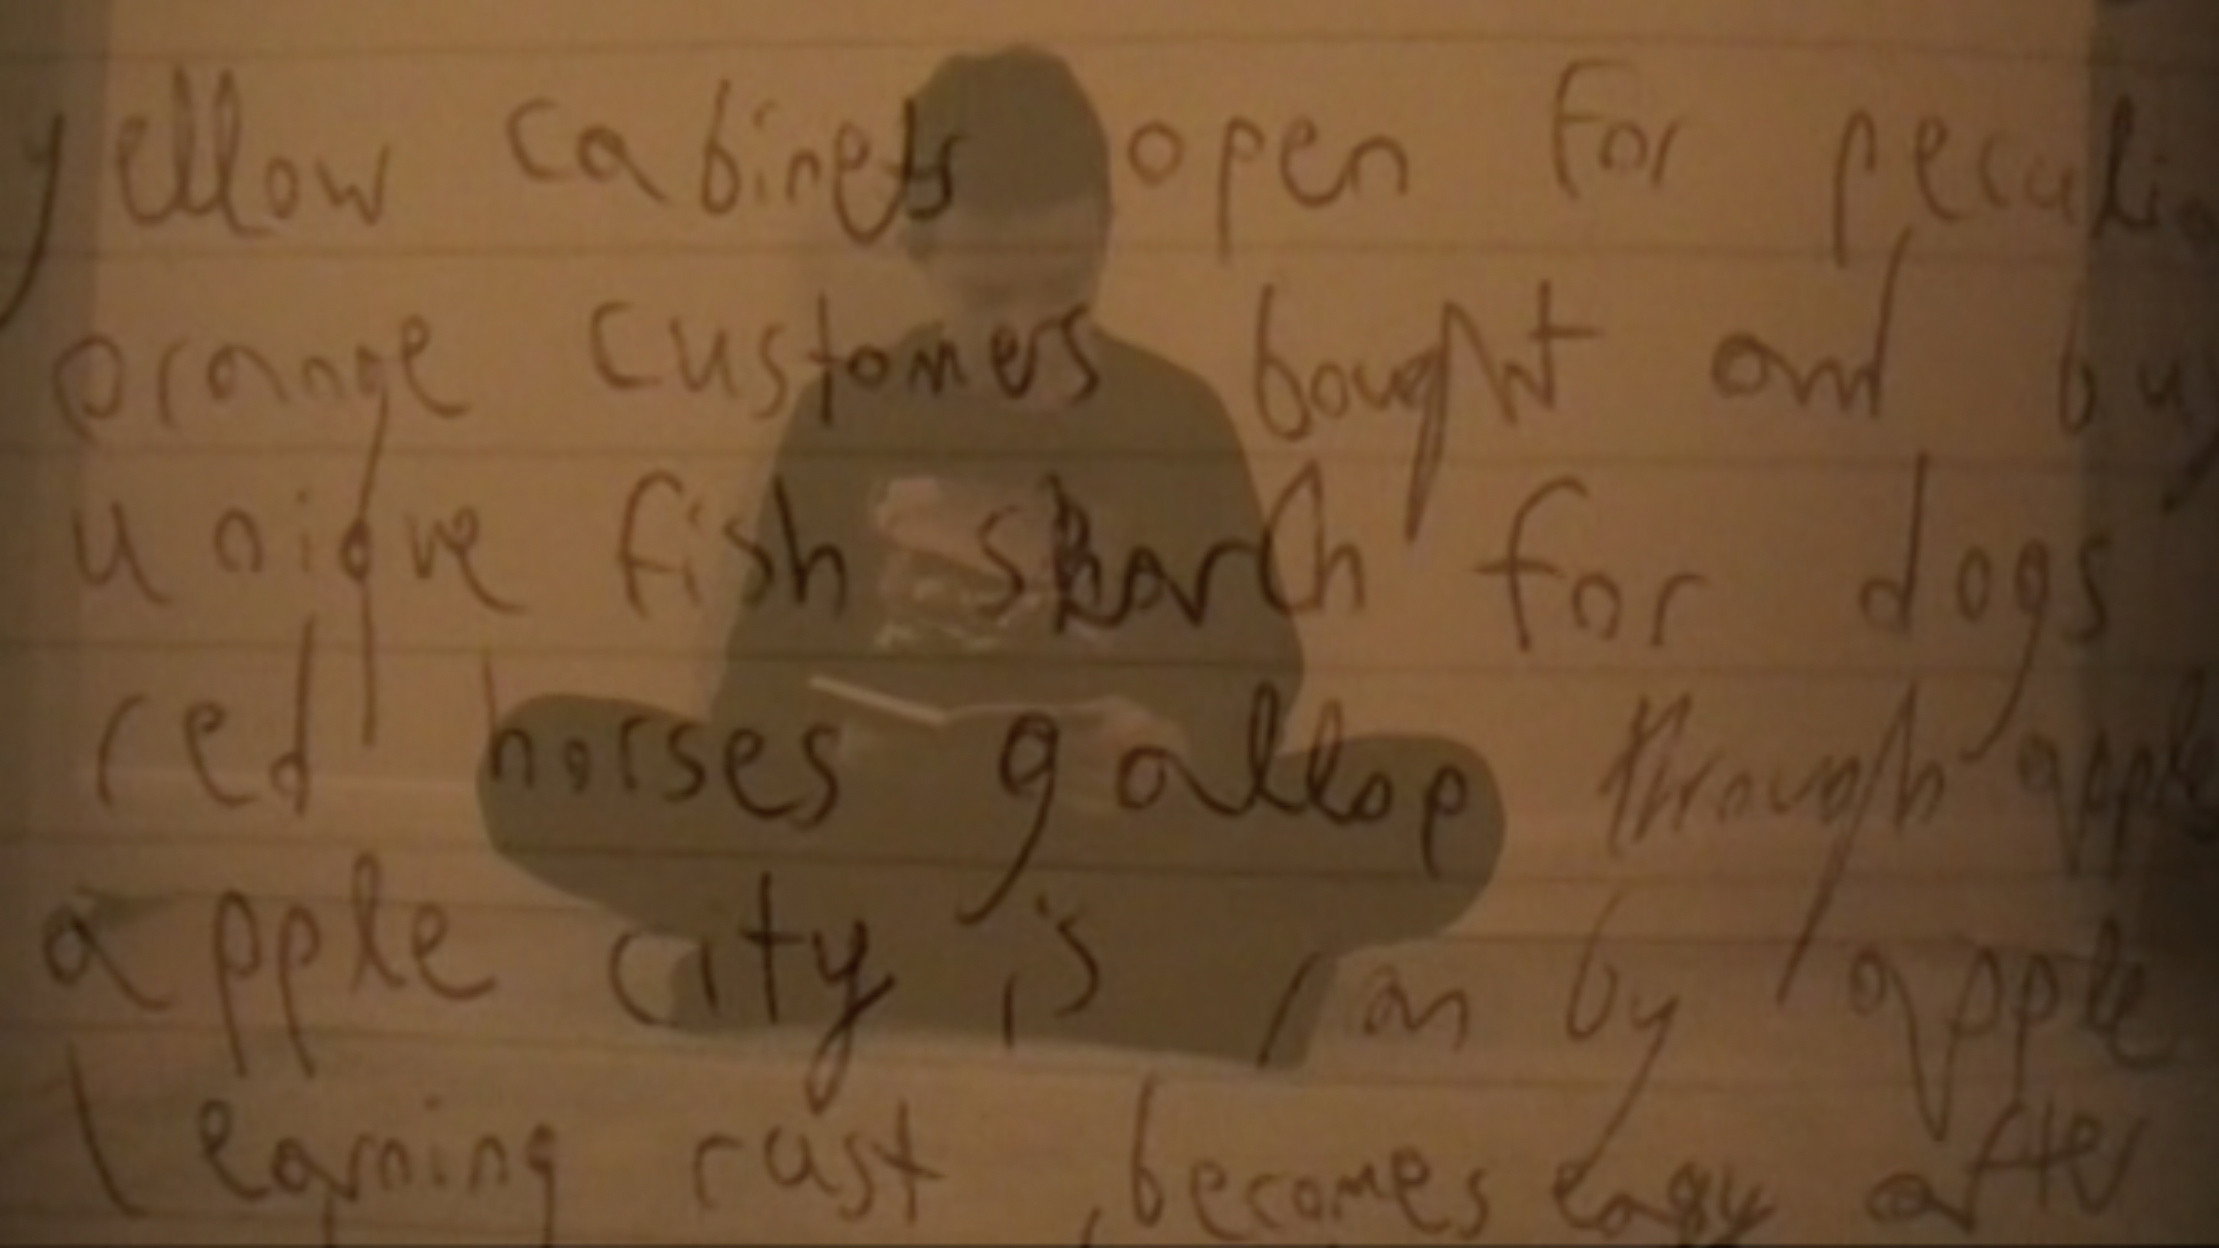 yellow cabinets open for
orange customers bought and buy
unique fish search for dogs
red horses gallop through apple
apple city is ran by apple
learning rust, becomes easy after